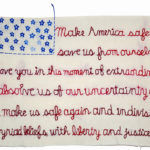 Make America safe
save us from ourselv
ve you in this moment of extraordin
absolve us of our uncertainty
make us safe again and indivis
myriad beliefs with liberty and justice